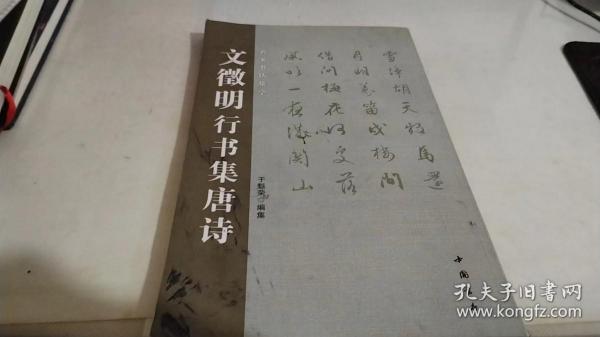 文徵明行书集唐诗
于魁荣 编集
雪净胡天牧马还
月明羌笛戍楼间
借问梅花何处落
风吹一夜满关山
孔夫子旧书网
www.kongfz.com